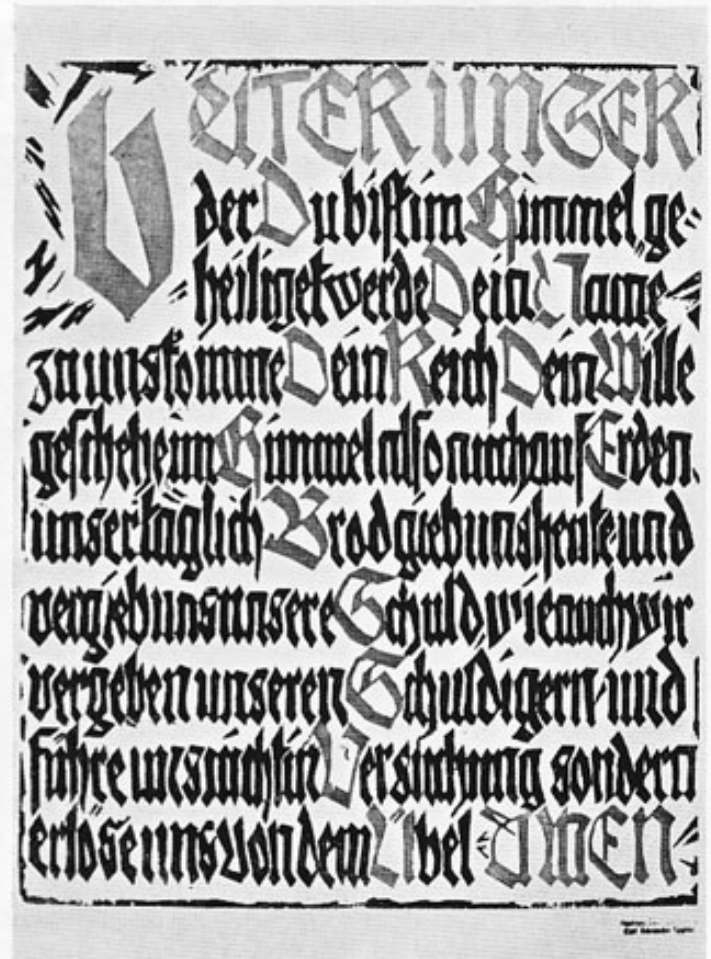 VATER UNSER
der Du bist im Himmel ge-
heiliget werde Dein Name
zu uns komme Dein Reich Dein Wille
geschehe im Himmel also auch auf Erden.
unser täglich Brod gieb uns heute und
vergieb uns unsere Schuld wie auch wir
vergeben unseren Schuldigern und
führe uns nicht in Versuchung sondern
erlöse uns von dem Übel AMEN